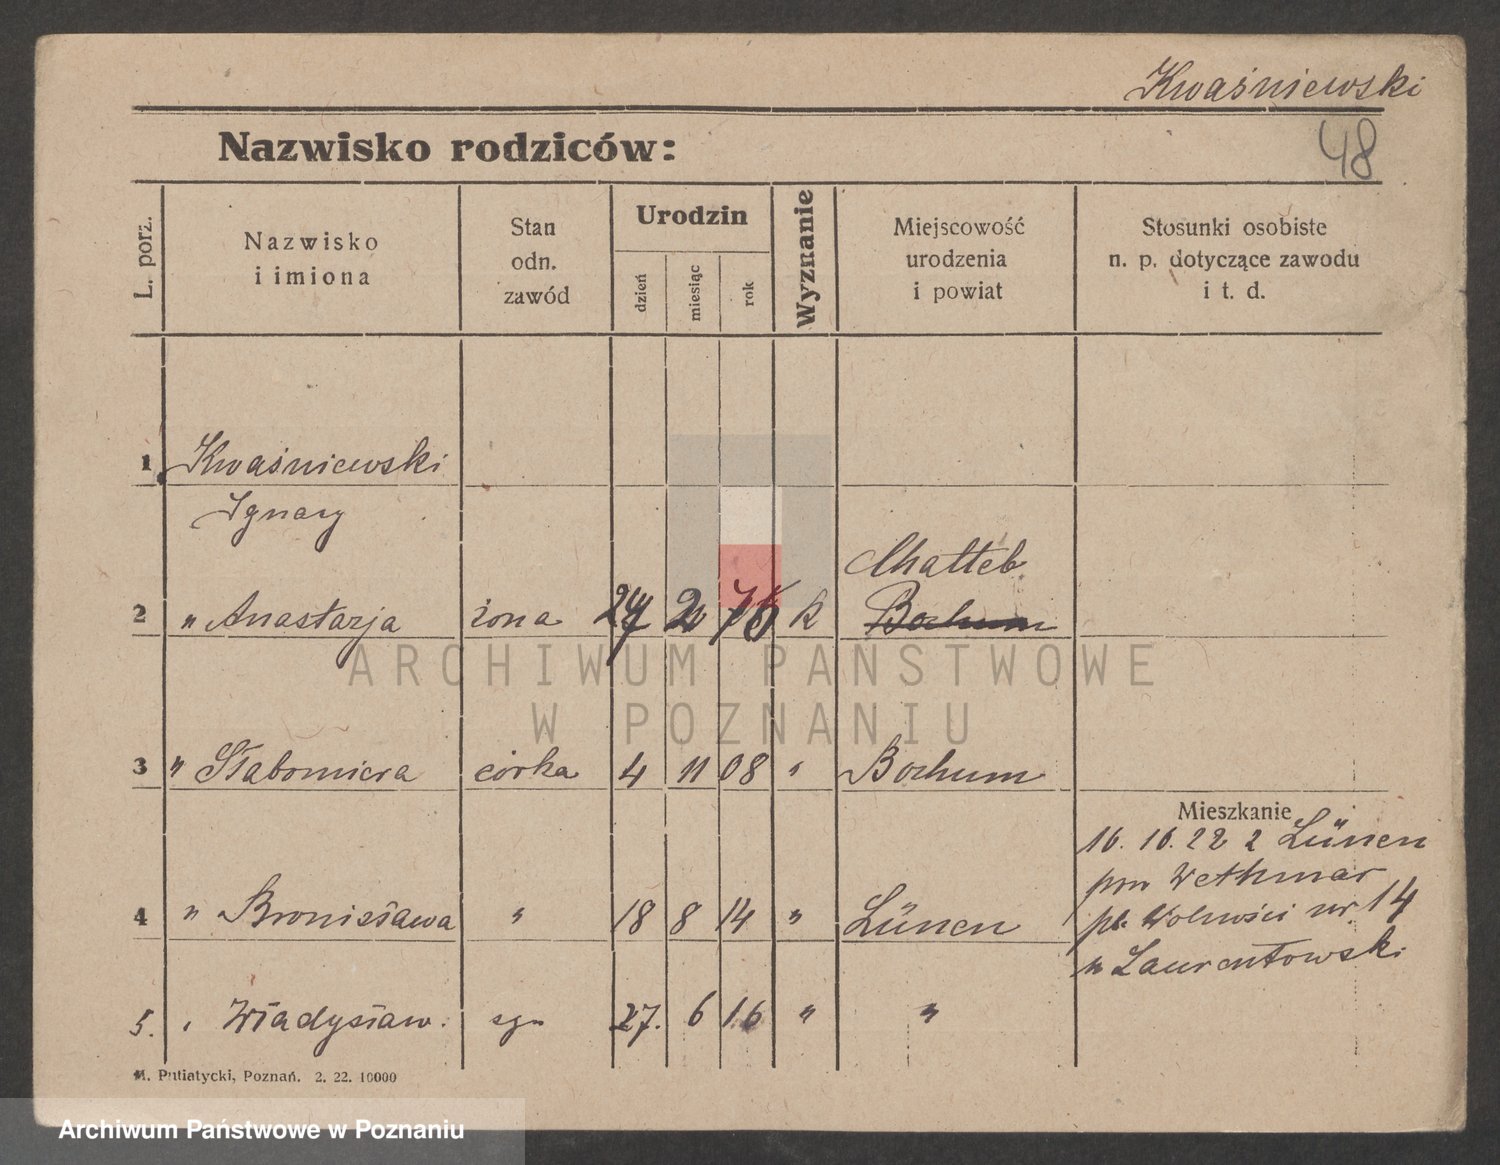 Kwaśniewski
48
Nazwisko rodziców:
L. porz.
Nazwisko
i imiona
Stan
odn.
zawód
Urodzin
dzień
miesiąc
rok
Wyznanie
Miejscowość
urodzenia
i powiat
Stosunki osobiste
n. p. dotyczące zawodu
i t. d.
1 Kwaśniewski
Ignacy
2 " Anastazja żona k
Bochum
ARCHIWUM PAŃSTWOWE
W POZNANIU
3 " Słabomiera córka 4 11 08 " Bochum
Mieszkanie
16. 10. 22 z Lünen
pow Wethmar
pl. Wolności nr. 14
u Laurentowski
4 " Bronisława " 18 8 14 " Lünen
5. " Władysław. syn 27. 6 16 " "
M. Putiatycki, Poznań. 2. 22. 10000
Archiwum Państwowe w Poznaniu